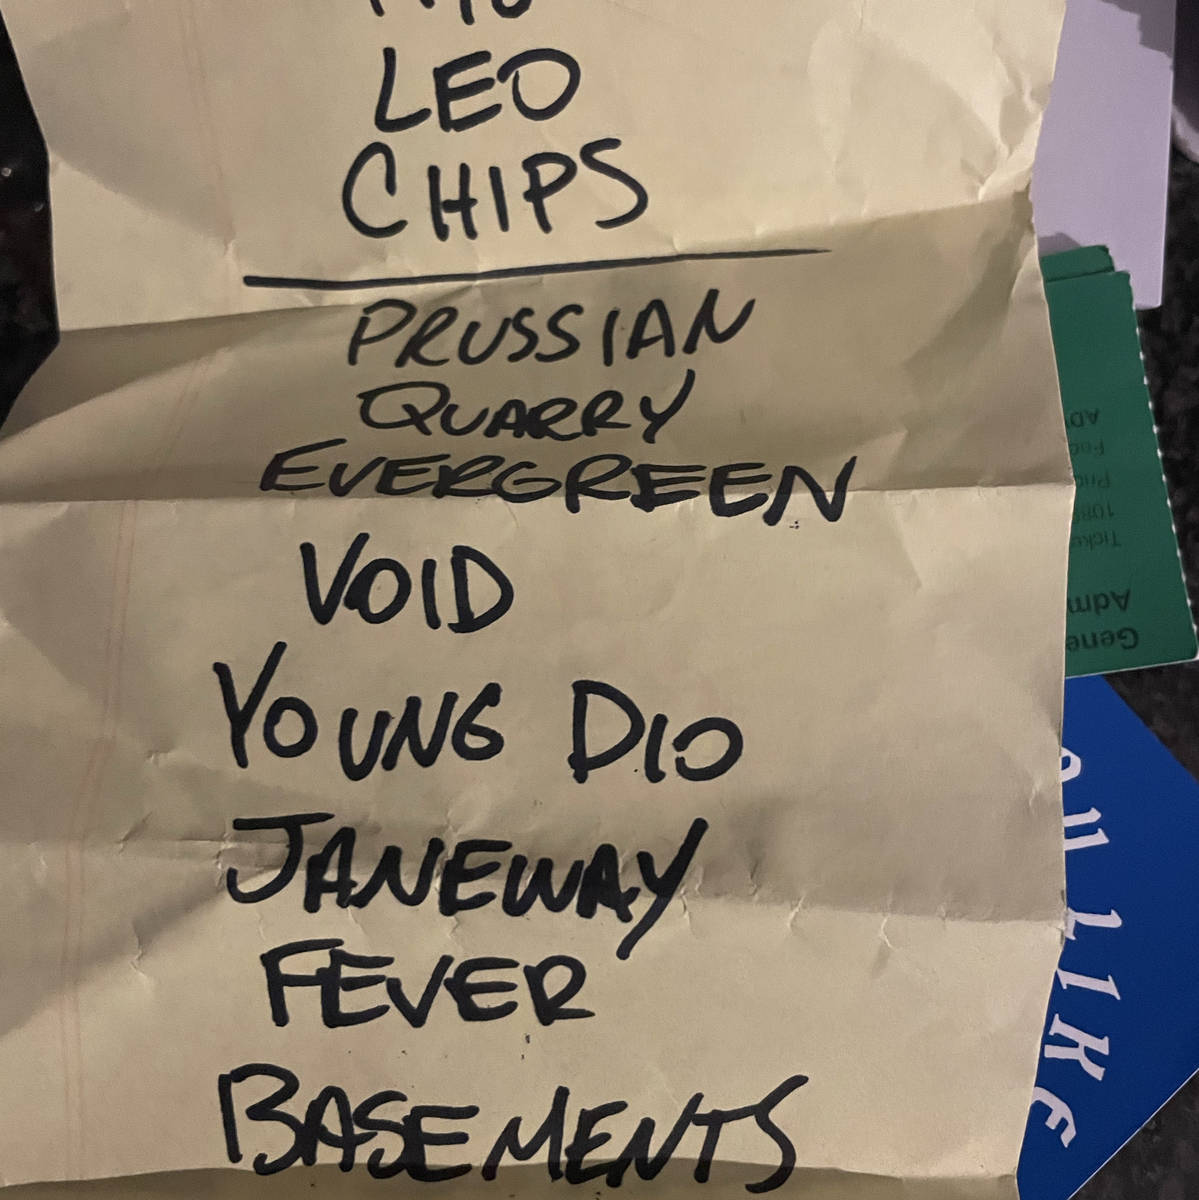 LEO
CHIPS
PRUSSIAN
QUARRY
EVERGREEN
VOID
YOUNG DIO
JANEWAY
FEVER
BASEMENTS
Gene
Adm
Ticke
108
Pric
Fac
AD
LIKE